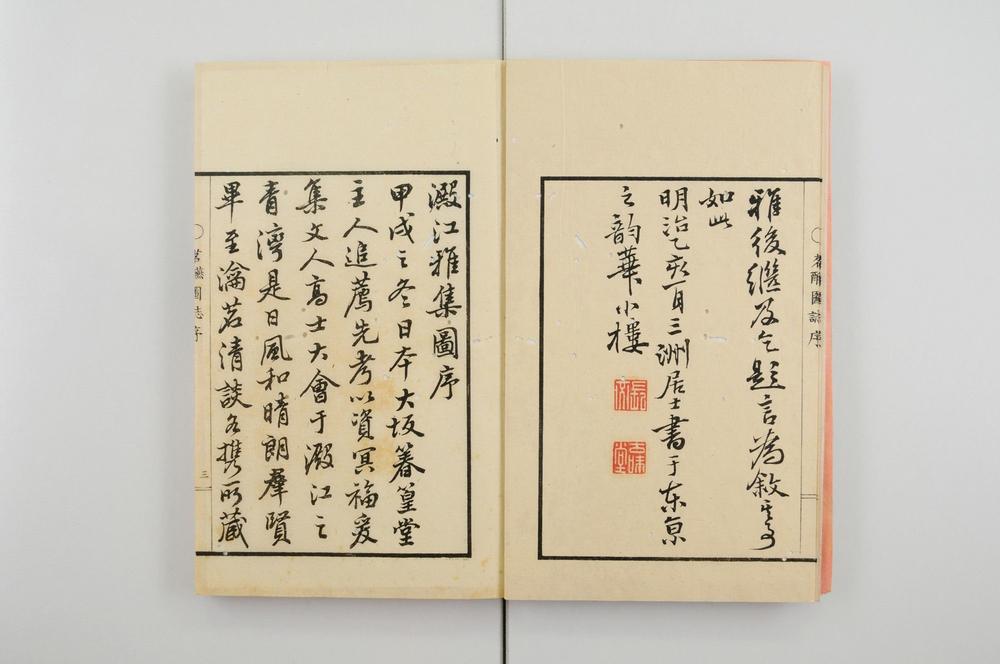 雅後継及乞題言為敘其事
如此
明治乙亥一月三洲居士書于東京
之韵華小樓
茗醼圖誌序
澱江雅集圖序
甲戌之冬日本大坂篸篁堂
主人追薦先考以資冥福爰
集文人高士大會于澱江之
青灣是日風和晴朗羣賢
畢至瀹茗清談各携所蔵
茗醼圖志序
三